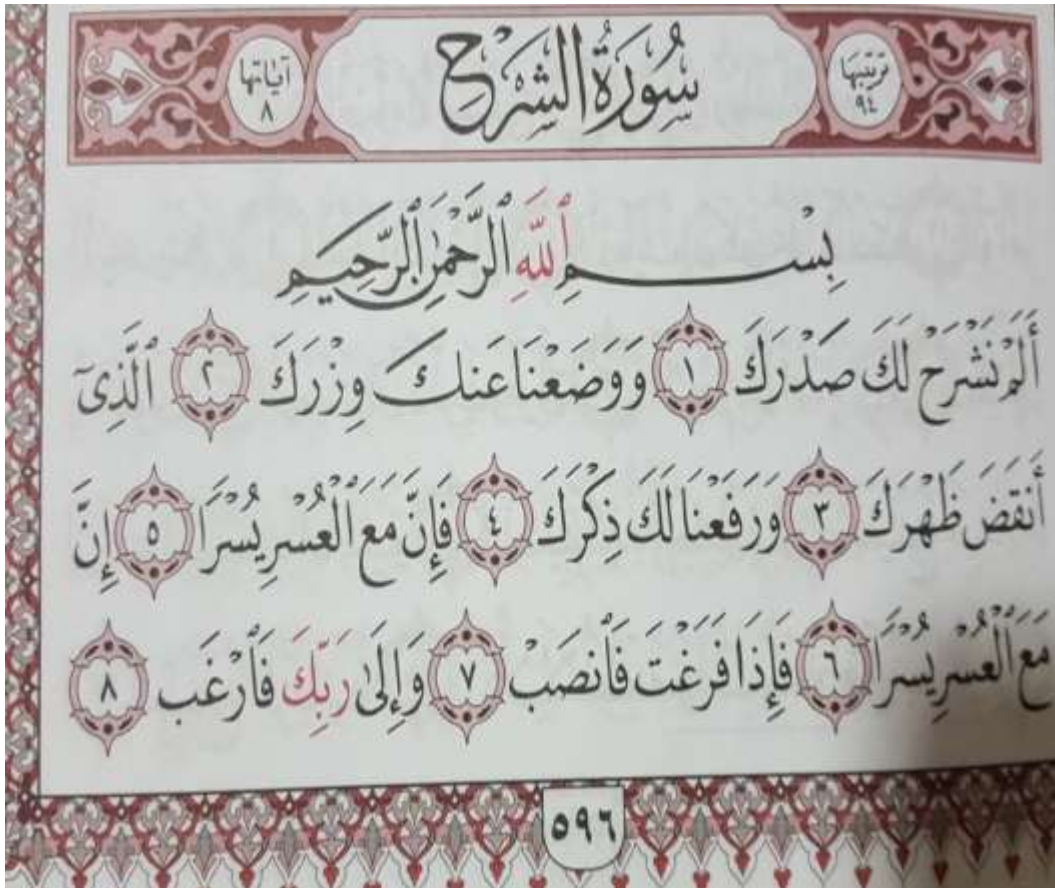 ترتيبها ٩٤
سُورَةُ الشَّرْحِ
آياتها ٨
بِسْمِ ٱللَّهِ ٱلرَّحْمَٰنِ ٱلرَّحِيمِ
أَلَمْ نَشْرَحْ لَكَ صَدْرَكَ ١ وَوَضَعْنَا عَنكَ وِزْرَكَ ٢ ٱلَّذِىٓ
أَنقَضَ ظَهْرَكَ ٣ وَرَفَعْنَا لَكَ ذِكْرَكَ ٤ فَإِنَّ مَعَ ٱلْعُسْرِ يُسْرًا ٥ إِنَّ
مَعَ ٱلْعُسْرِ يُسْرًا ٦ فَإِذَا فَرَغْتَ فَٱنصَبْ ٧ وَإِلَىٰ رَبِّكَ فَٱرْغَب ٨
٥٩٦